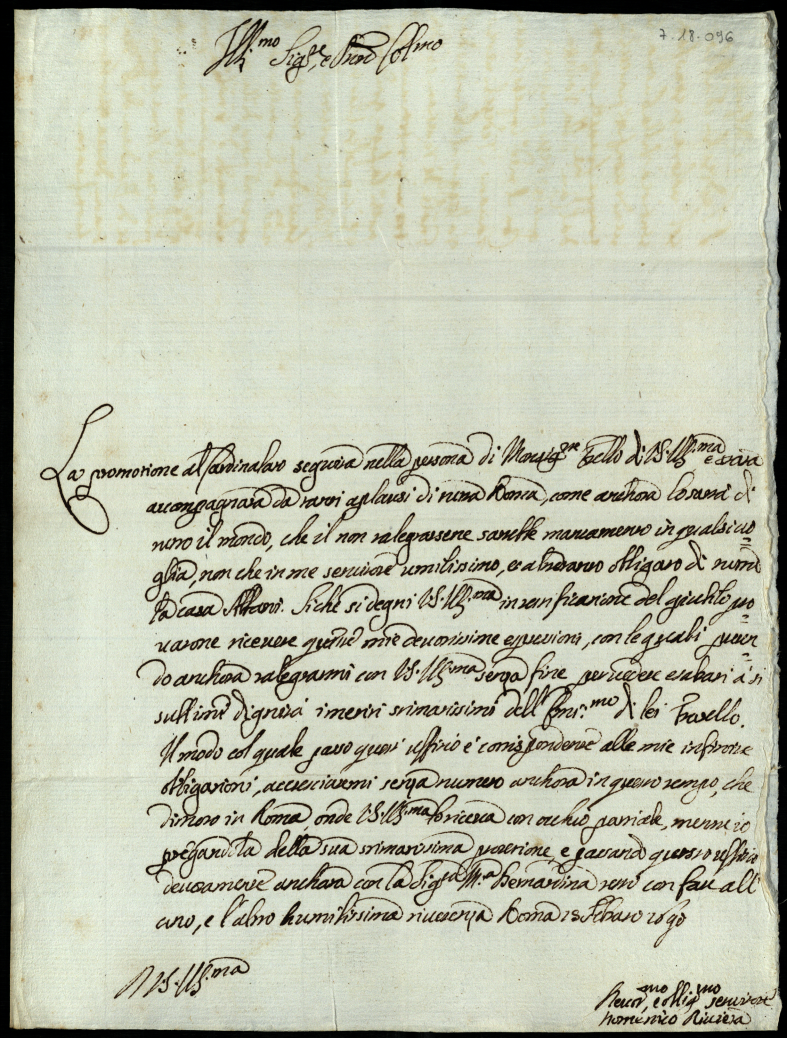 7-18-096
Ill.mo Sig.re, e Pron Col.mo
La promotione al Cardinalato seguita nella persona di Monsig.re Fratello di V.S. Ill.ma è stata
accompagnata da tanti aplausi di tutta Roma, come anchora lo sarà di
tutto il mondo, che il non ralegrassene sarebbe mancamento in qualsivo=
glia, non che in me servitore umilissimo, e obligato di tutta
la casa Albani. Sichè si degni V.S. Ill.ma in testificatione del giubilo pro=
vatone ricevere queste mie devotissime espressioni, con le quali
do anchora ralegrarmi con V.S. Ill.ma senza fine per vedere esaltati à si
sublime dignità i meriti stimatissimi dell' Emi.mo di lei Fratello.
Il modo col quale passo questi uffitio è corrispondente alle mie infinite
obligationi, accresciutemi senza numero anchora in questo tempo, che
dimoro in Roma, onde V.S. Ill.ma lo riceva con ochio partiale, mentre io
pregandola della sua stimatissima protetione, e passando questo uffitio
devotamente anchora con la Sig.ra M.a Bernardina resto con fare all'
uno, e l'altro humilissima riverenza Roma 18 Febraro 1690
D V.S. Ill.ma
Devot.mo, e oblig.mo servitore
Domenico Riviera